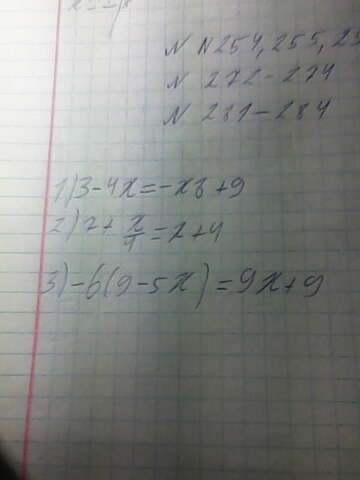 N N254, 255, 25
N 272-274
N 281-284
1) 3-4x=-x8+9
2) 7+x/4=2+4
3) -6(9-5x)=9x+9